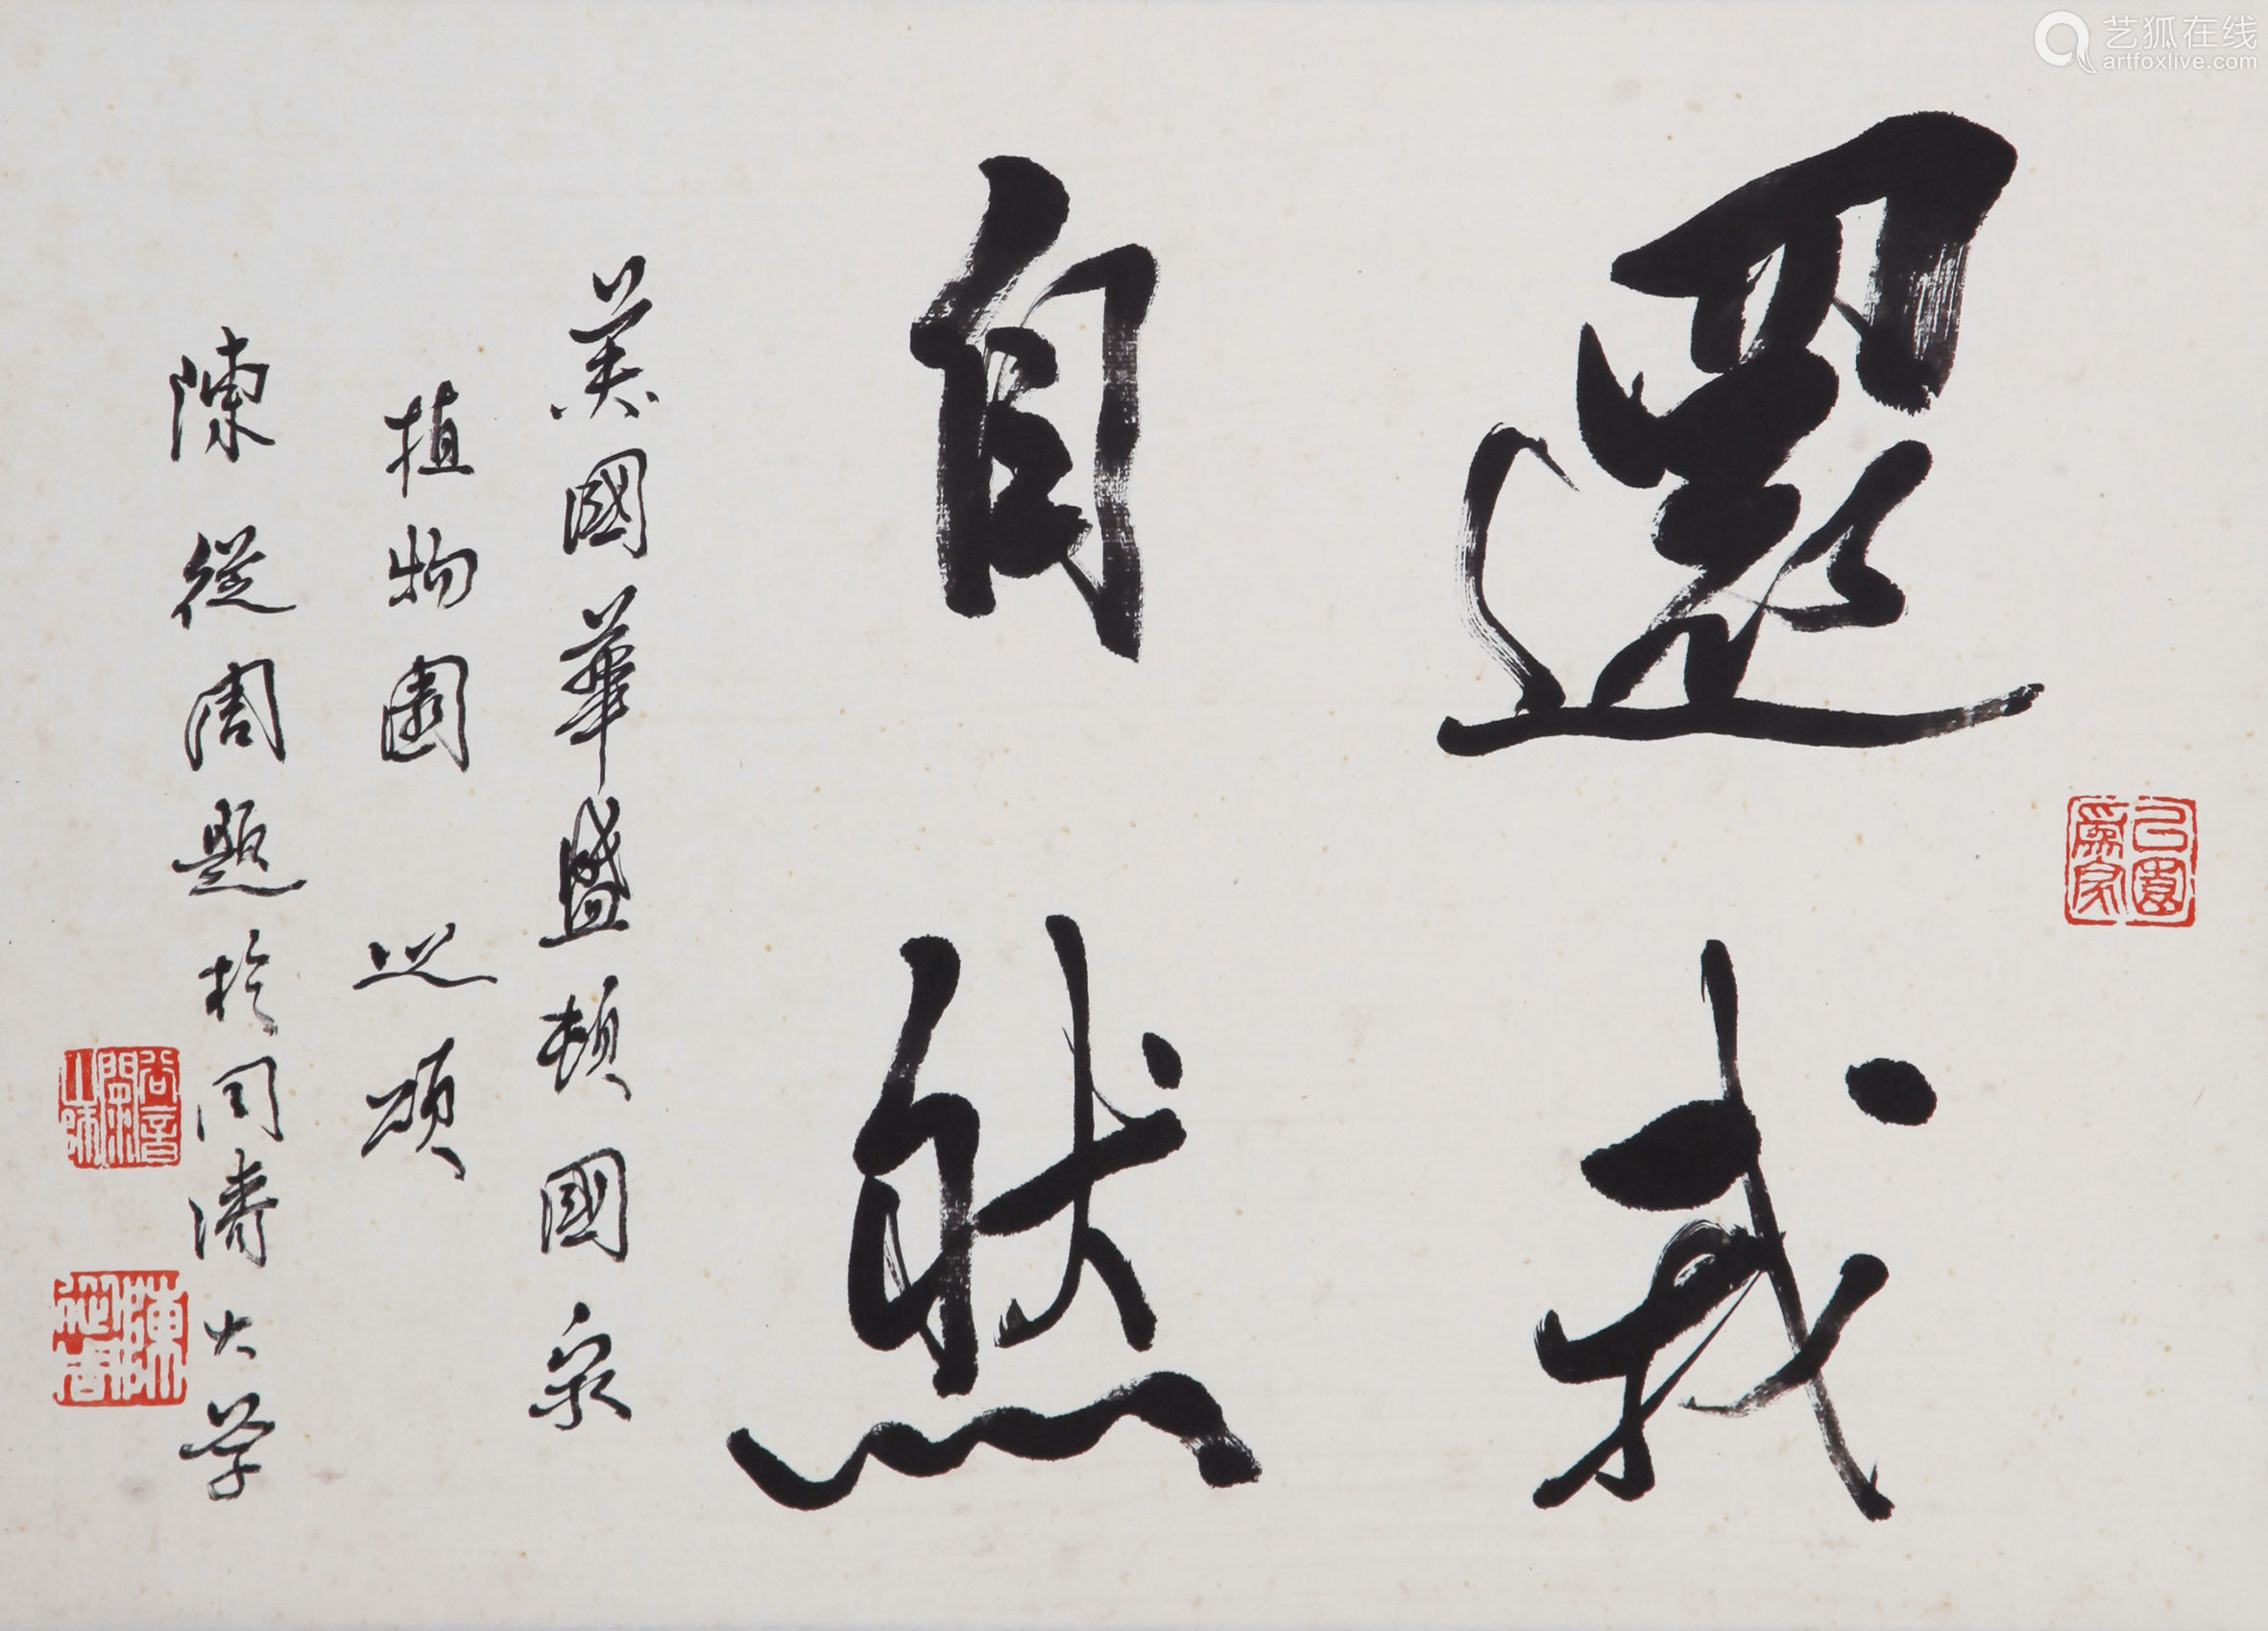 艺狐在线
artfoxlive.com
還我
自然
美國華盛頓國家
植物園 之頌
陳從周題於同濟大学
以園爲家
陳從周